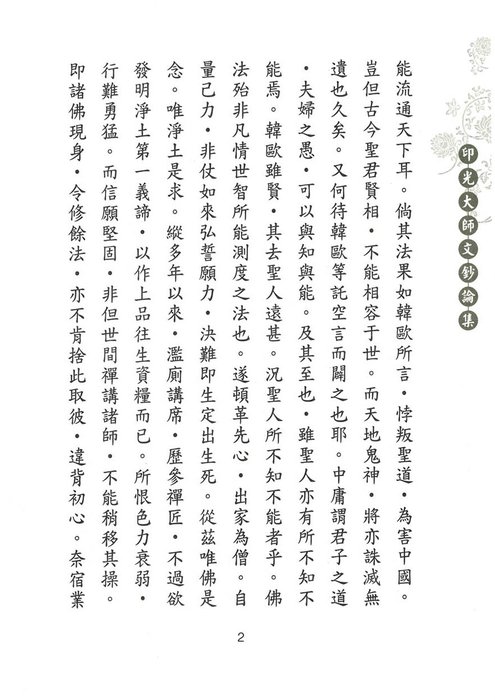 印光大師文鈔論集
能流通天下耳。倘其法果如韓歐所言・悖叛聖道・為害中國。
豈但古今聖君賢相・不能相容于世。而天地鬼神・將亦誅滅無
遺也久矣。又何待韓歐等託空言而闢之也耶。中庸謂君子之道
・夫婦之愚・可以與知與能。及其至也・雖聖人亦有所不知不
能焉。韓歐雖賢・其去聖人遠甚。況聖人所不知不能者乎。佛
法殆非凡情世智所能測度之法也。遂頓革先心・出家為僧。自
量己力・非仗如來弘誓願力・決難即生定出生死。從茲唯佛是
念。唯淨土是求。縱多年以來・濫廁講席・歷參禪匠・不過欲
發明淨土第一義諦・以作上品往生資糧而已。所恨色力衰弱・
行難勇猛。而信願堅固・非但世間禪講諸師・不能稍移其操。
即諸佛現身・令修餘法・亦不肯捨此取彼・違背初心。奈宿業
2